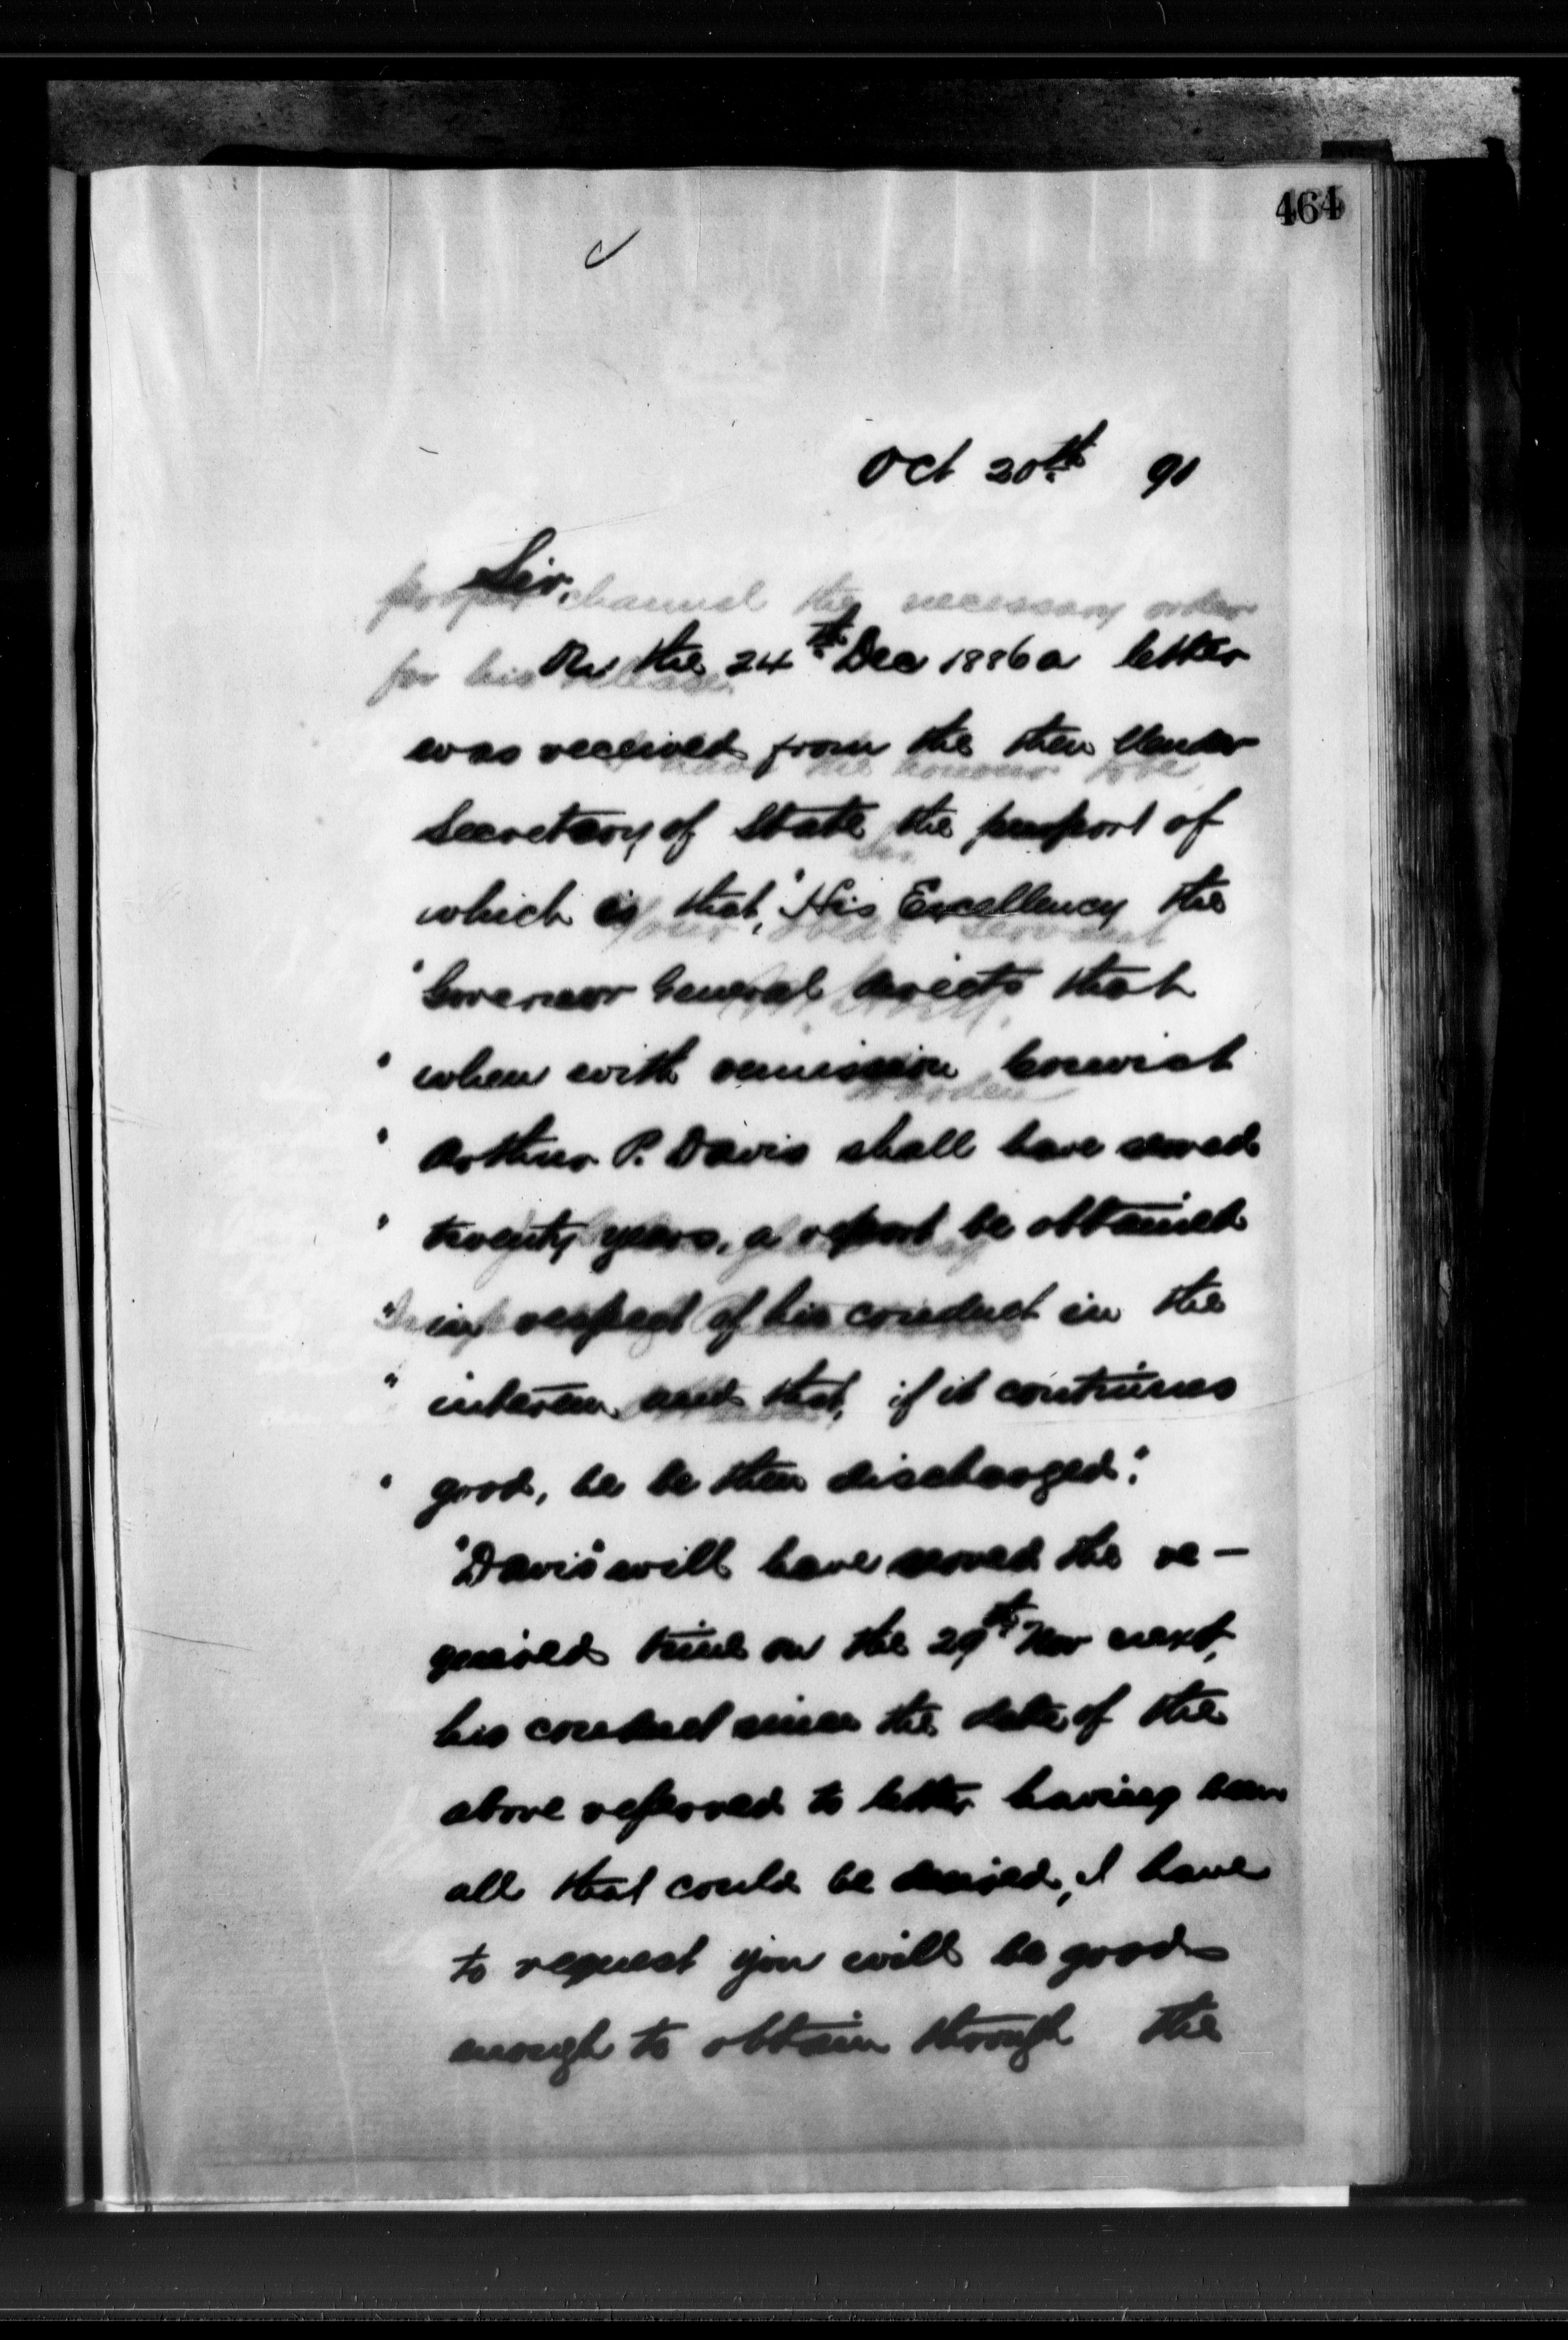 464
Oct 20th 91
Sir,
On the 24th Dec 1886 a letter
was received from the then Under
Secretary of State the purport of
which is that, "His Excellency the
"Governor General directs that
" when with remission Convict
" Arthur P. Davis shall have served
" twenty years, a report be obtained
" in respect of his conduct in the
" interim and that, if it continues
" good, he be then discharged."
"Davis" will have served the re-
quired time on the 29th Nov next,
his conduct since the date of the
above referred to letter having been
all that could be desired, I have
to request you will be good
enough to obtain through the
proper channel the necessary order
for his release.
have the honour to be
Sir
Your obedt servant
Warden